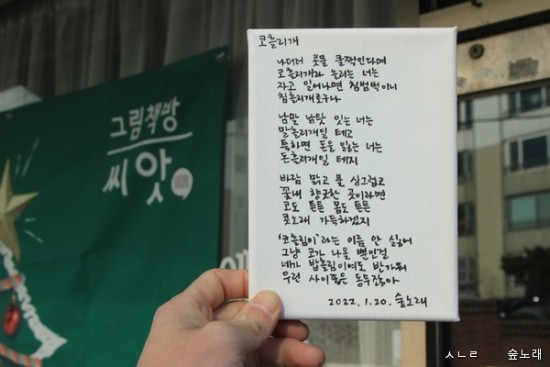 그림책방
씨앗
코흘리개
나더러 콧물 훌쩍인다며
코흘리개라 놀리는 너는
자고 일어나면 침범벅이니
침흘리개로구나
남말 낮 잊는 너는
말흘리개일 테고
툭하면 돈을 잃는 너는
돈흘리개일 테지
바람 맑고 물 싱그럽고
꽃내 향긋한 곳이라면
코도 튼튼 몸도 튼튼
콧노래 가득하겠지
'코흘림이'라는 이름 안 싫어
그냥 코가 나올 뿐인걸
네가 밥흘림이여도 반가워
우린 사이좋은 동무잖아
2022.1.20. 숲노래
ㅅㄴㄹ 숲노래